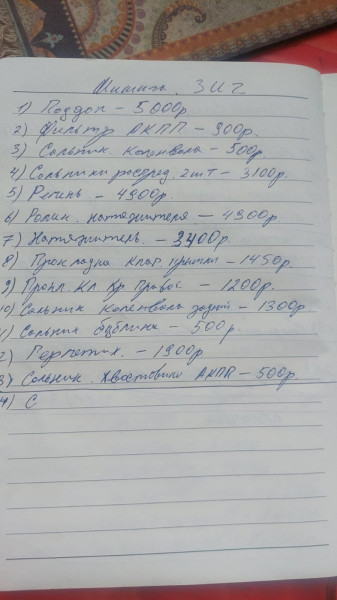 ЗИЧ
1) Поддон – 5000р.
2) Фильтр АКПП – 900р.
3) Сальник. Коленвала – 500р.
4) Сальники распред. 2шт – 3100р.
5) Ремень – 4900р.
6) Ролик. натяжителя – 4900р.
7) Натяжитель. – 3400р.
8) Прокладка Клап крышки – 1450р.
9) Прокл Кл Кр Правос – 1200р.
10) Сальник Коленвала задний – 1300р.
11) Сальник бублика – 500р.
2) Герметик. – 1900р.
3) Сальник. Хвостовика АКПП – 500р.
4) С